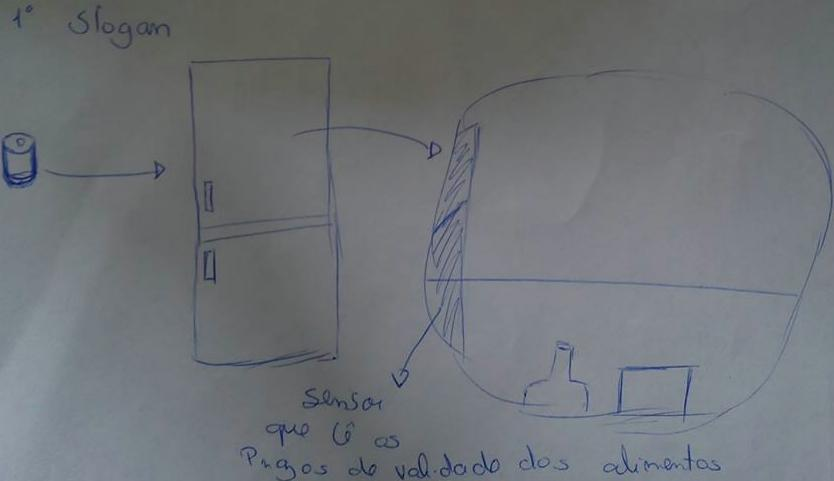 1º Slogan
Sensor
que lê os
Prazos de validade dos alimentos